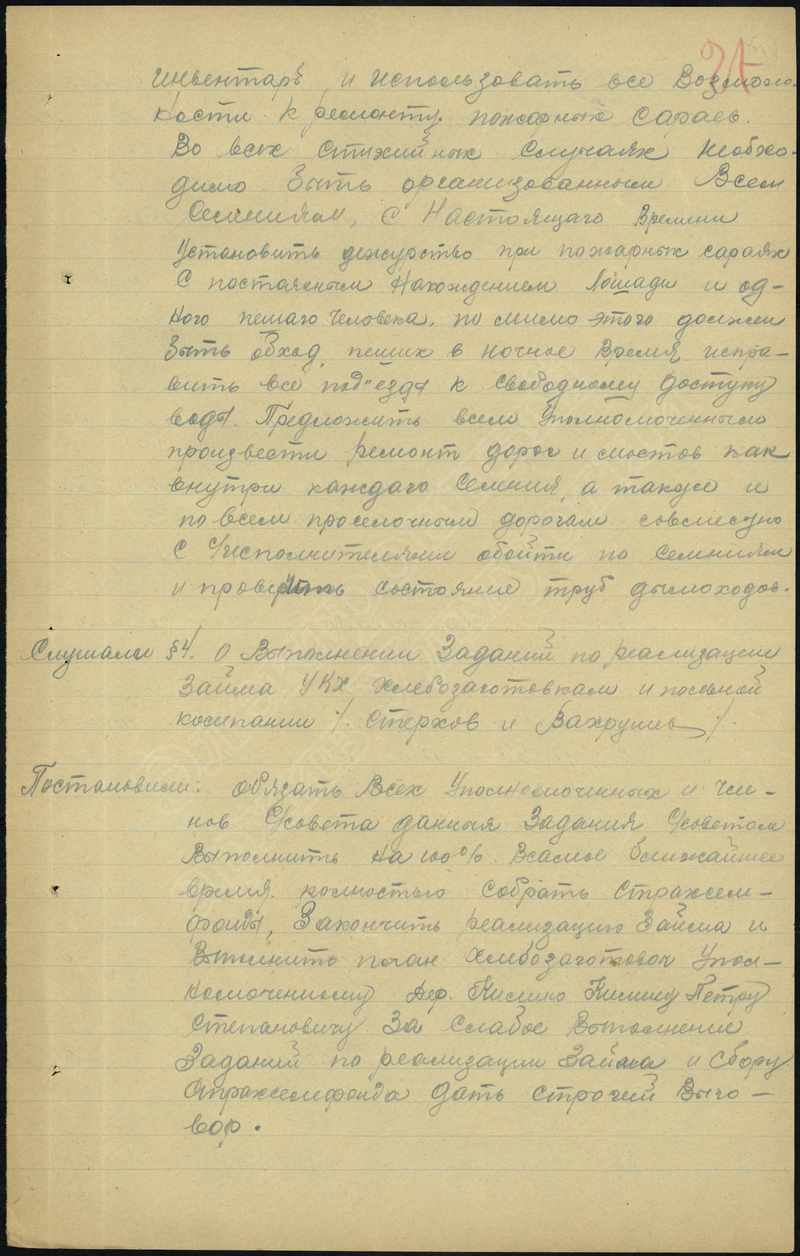 инвентарь и использовать все Возмож-
ности к ремонту пожарных Сараев.
Во всех стихийных случаях необхо-
димо Быть организованным Всем
Селениям, с Настоящаго Времени
Установить дежурство при пожарных сараях
С постаяным Нахождением Лошади и од-
ного пешаго Человека, по мимо этого должен
Быть обход пеших в ночное Время, испра-
вить все под"езды к свободному доступу
воды. Предложить всем Уполномоченным
произвести ремонт дорог и мостов как
внутри каждаго Селения, а также и
по всем проселочным дорогам совместно
С Исполнителями обойти по Селениям
и проверить состояние труб дымоходов.
Слушали §4. О Выполнении Заданий по реализации
Займа УКХ, хлебозаготовкам и посевной
компании /. Стерхов и Вахрушев /.
Постановили: обязать Всех Уполномоченных и чле-
нов С/совета данныя Задания С/советом
Выполнить на 100% Всамое ближайшее
время. полностью собрать страхсем-
фонды, Закончить реализацию Займа и
Выполнить план хлебозаготовок Упол-
номоченному дер. Кислино Кислину Петру
Степановичу За слабое Выполнение
Заданий по реализации Займа и сбору
Страхсемфонда дать строгий Выго-
вор.